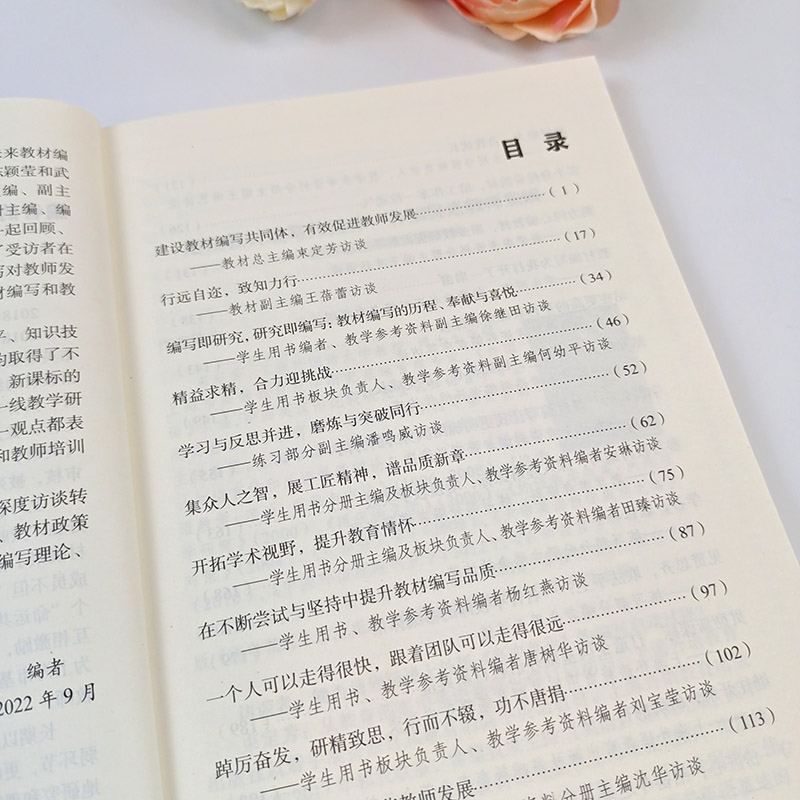 来教材编
颖莹和武
编、副主
主编、编
一起回顾、
了受访者在
对教师发
材编写和教
、知识技
均取得了不
新课标的
线教学研
观点都表
和教师培训
深度访谈转
、教材政策
编写理论、
编者
2022 年 9 月
目 录
建设教材编写共同体，有效促进教师发展……（1）
——教材总主编束定芳访谈
行远自迩，致知力行……（17）
——教材副主编王蓓蕾访谈
编写即研究，研究即编写：教材编写的历程、奉献与喜悦……（34）
——学生用书编者、教学参考资料副主编徐继田访谈
精益求精，合力迎挑战……（46）
——学生用书板块负责人、教学参考资料副主编何幼平访谈
学习与反思并进，磨炼与突破同行……（52）
——练习部分副主编潘鸣威访谈
集众人之智，展工匠精神，谱品质新章……（62）
——学生用书分册主编及板块负责人、教学参考资料编者安琳访谈
开拓学术视野，提升教育情怀……（75）
——学生用书分册主编及板块负责人、教学参考资料编者田臻访谈
在不断尝试与坚持中提升教材编写品质……（87）
——学生用书、教学参考资料编者杨红燕访谈
一个人可以走得很快，跟着团队可以走得很远……（97）
——学生用书、教学参考资料编者唐树华访谈
踔厉奋发，研精致思，行而不辍，功不唐捐……（102）
——学生用书板块负责人、教学参考资料编者刘宝莹访谈
教师发展……（113）
分册主编沈华访谈